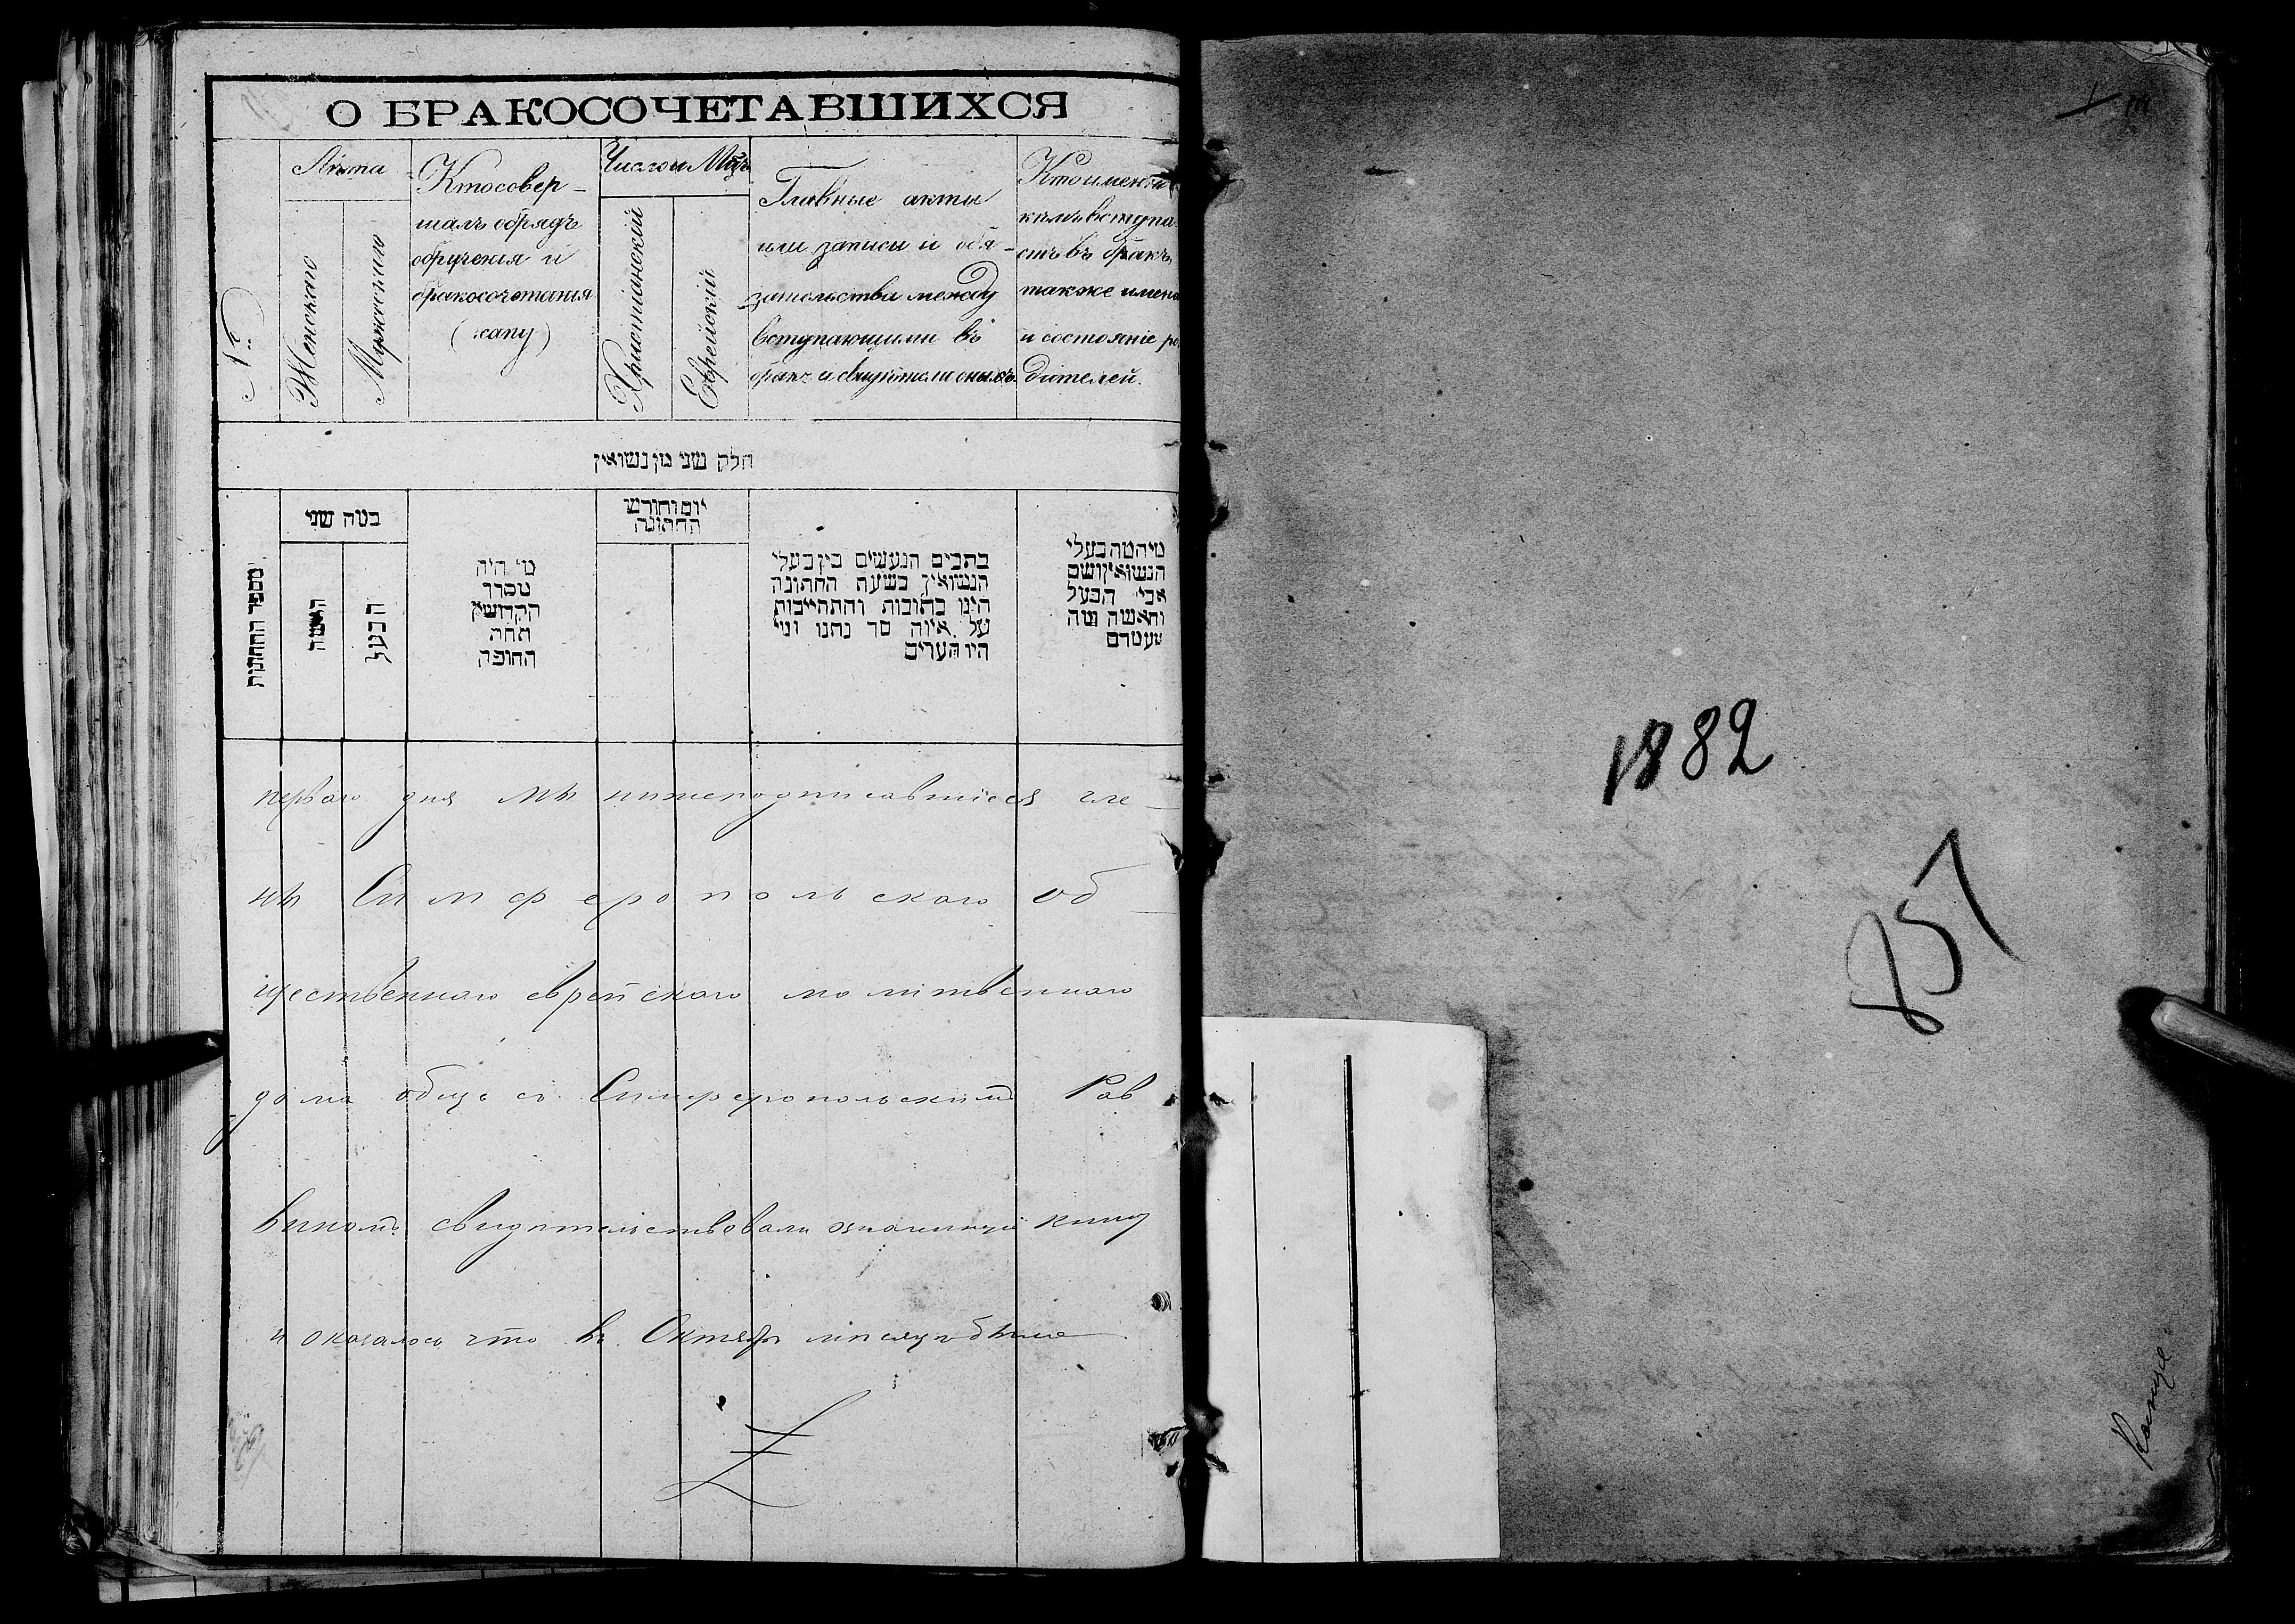 О БРАКОСОЧЕТАВШИХСЯ
№
Лѣта
Женскаго
Мужескаго
Кто совер-
шалъ обрядъ
обрученія и
бракосочетанія
(хапу)
Число и Мѣц.
Христіанскій
Еврейскій
Главные акты
или записи и обя-
зательства между
вступающими въ
бракъ и свидѣтели оныхъ
Кто именно
кѣмъ вступа
етъ въ бракъ
также имена
и состояніе ро
дителей.
חלק שני מן נשואין
מספר החתונות
כמה שני
האשה
הבעל
מי היה
מסדר
הקדושין
תחת
החופה
יום וחודש
החתונה
כתבים הנעשים בין בעלי
הנשואין בשעת החתונה
היינו כתובות והתחייבות
על איזה סך נתנו ומי
היו העדים
מיהמה בעלי
הנשואין ושם
אבי הבעל
והאשה ומה
מעמדם
перваго дня мы нижеподписавшіеся чле-
ны Симферопольскаго об-
щественнаго еврейскаго молитвеннаго
дома обще съ Симферопольскимъ Рав
виномъ свидѣтельствовали означенную книгу
и оказалось что въ Октябрѣ мѣсяцѣ было
1882
857